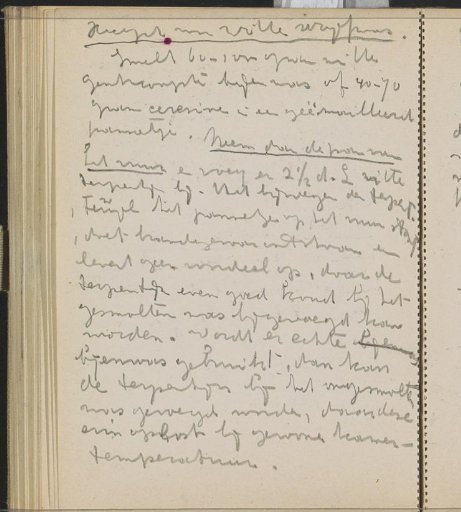 Recept van witte wrijfwas.
Smelt 60-100 gram witte
was of 40-70
gram ceresine in een geëmailleerd
pannetje. Neem dan de pan van
het vuur en voeg er 2½ d.L witte
terpentijn bij. Het bijvoegen der terpt.
terwijl het pannetje op het vuur staat,
doet brandgevaar ontstaan en
levert geen voordeel op, daar de
terpentijn even goed bij het
gesmolten was bijgevoegd kan
worden. Wordt er echte
bijenwas gebruikt, dan kan
de terpentijn bij het ongesmolten
was gevoegd worden, daar deze
erin oplost bij gewone kamer-
temperatuur.